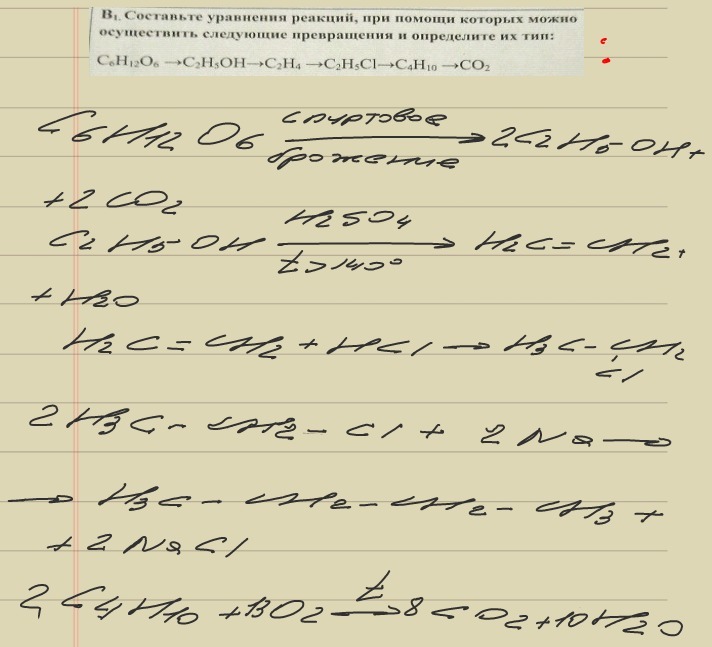 В₁. Составьте уравнения реакций, при помощи которых можно
осуществить следующие превращения и определите их тип:
C₆H₁₂O₆ →C₂H₅OH→C₂H₄ →C₂H₅Cl→C₄H₁₀ →CO₂
спиртовое
C₆H₁₂O₆ ⟶ 2C₂H₅-OH+
брожение
+2CO₂
H₂SO₄
C₂H₅-OH ⟶ H₂C=CH₂+
t>140°
+H₂O
H₂C=CH₂+HCl → H₃C-CH₂
Cl
2H₃C-CH₂-Cl + 2Na →
→ H₃C-CH₂-CH₂-CH₃ +
+2NaCl
t
2C₄H₁₀ +13O₂ → 8CO₂+10H₂O